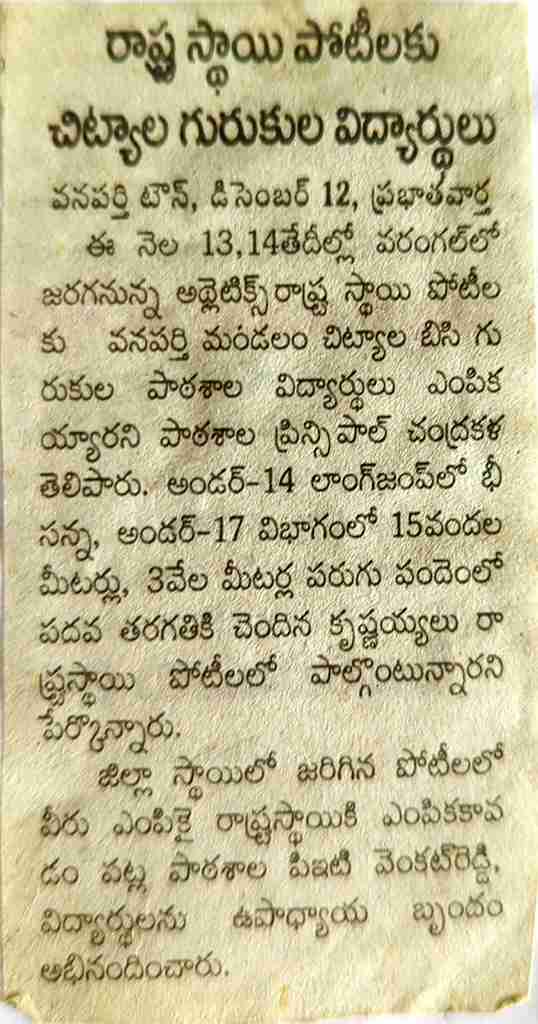 రాష్ట్ర స్థాయి పోటీలకు
చిట్యాల గురుకుల విద్యార్థులు
వనపర్తి టౌన్, డిసెంబర్ 12, ప్రభాతవార్త
ఈ నెల 13,14తేదీల్లో వరంగల్‌లో
జరగనున్న అథ్లెటిక్స్ రాష్ట్ర స్థాయి పోటీల
కు వనపర్తి మండలం చిట్యాల బిసి గు
రుకుల పాఠశాల విద్యార్థులు ఎంపిక
య్యారని పాఠశాల ప్రిన్సిపాల్ చంద్రకళ
తెలిపారు. అండర్-14 లాంగ్‌జంప్‌లో భీ
సన్న, అండర్-17 విభాగంలో 15వందల
మీటర్లు, 3వేల మీటర్ల పరుగు పందెంలో
పదవ తరగతికి చెందిన కృష్ణయ్యలు రా
ష్ట్రస్థాయి పోటీలలో పాల్గొంటున్నారని
పేర్కొన్నారు.
జిల్లా స్థాయిలో జరిగిన పోటీలలో
వీరు ఎంపికై రాష్ట్రస్థాయికి ఎంపికకావ
డం పట్ల పాఠశాల పిఇటి వెంకట్‌రెడ్డి,
విద్యార్థులను ఉపాధ్యాయ బృందం
అభినందించారు.